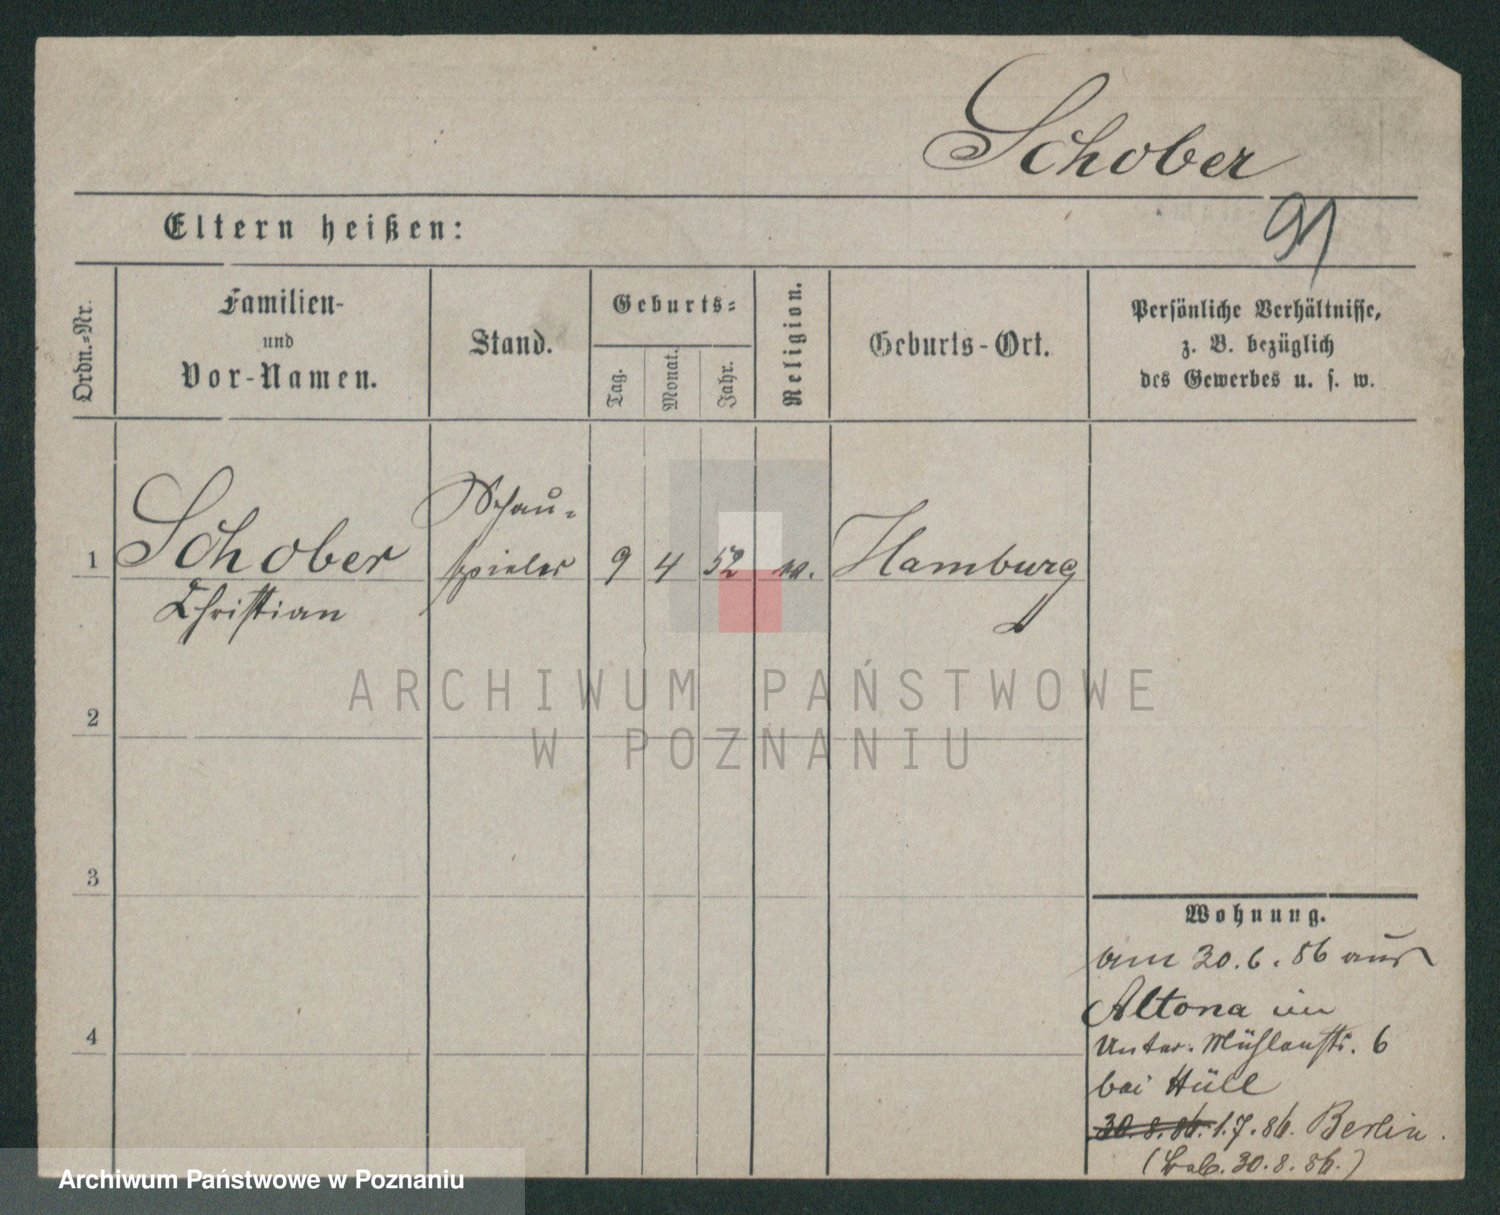 Schober
91
Eltern heißen:
Ordn.-Nr.
Familien-
und
Vor-Namen.
Stand.
Geburts-
Tag.
Monat.
Jahr.
Religion.
Geburts-Ort.
Persönliche Verhältnisse,
z. B. bezüglich
des Gewerbes u. s. w.
1
Schober
Christian
Schau-
spieler
9
4
52
Hamburg
2
3
4
Wohnung.
am 30.6.86 aus
Altona in
Unter. Mühlenstr. 6
bei Hüll
30.8.86. 1.7.86. Berlin.
30.8.86.)
ARCHIWUM PAŃSTWOWE
W POZNANIU
Archiwum Państwowe w Poznaniu